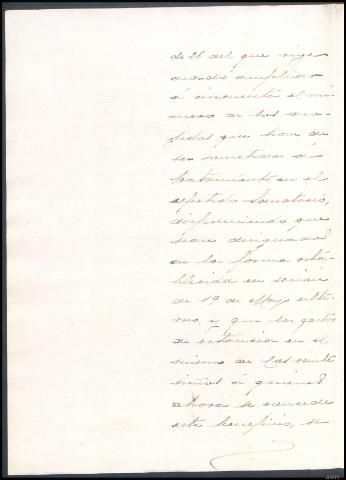 de 26 del que rige
acordó ampliar
á cincuenta el nú-
mero de los
que han de
ser sometidos á
tratamiento en el
repetido Sanatorio,
disponiendo que
sean designados
en la forma está-
blecida en sesión
de 19 de Mayo últi-
mo, y que los gastos
de estancia en el
mismo de los veinte
niños á quienes
ahora se concede
este beneficio, se